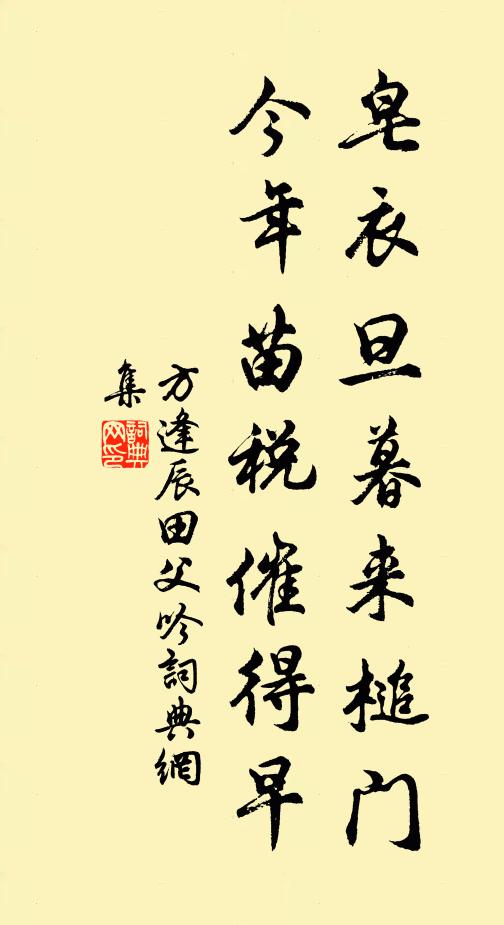 皂衣旦暮来槌门
今年苗税催得早
方逢辰田父吟詞典網
集
詞典
网印